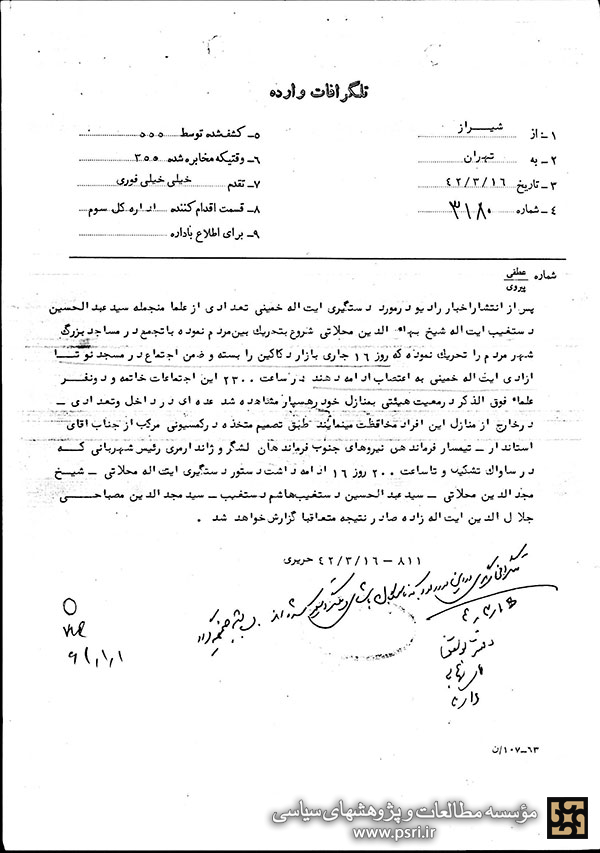 تلگرافات وارده
۱ـ از شیراز
۲ـ به تهران
۳ـ تاریخ ۴۲/۳/۱۶
۴ـ شماره ۳۱۸۰
۵ـ کشف‌شده توسط ۵۵۵
۶ـ وقتیکه مخابره شده ۳۵۵
۷ـ تقدم خیلی خیلی فوری
۸ـ قسمت اقدام کننده اداره کل سوم
۹ـ برای اطلاع باداره
شماره عطفی
پیروی
پس از انتشار اخبار رادیو در مورد دستگیری ایت اله خمینی تعدادی از علما منجمله سید عبدالحسین
دستغیب ایت اله شیخ بهاء الدین محلاتی شروع بتحریک بین مردم نموده با تجمع در مساجد بزرگ
شهر مردم را تحریک نموده که روز ۱۶ جاری بازار دکاکین را بسته و ضمن اجتماع در مسجد نو تا
ازادی ایت اله خمینی به اعتصاب ادامه دهند در ساعت ۲۳۰۰ این اجتماعات خاتمه و دونفر
علماء فوق الذکر در معیت هیئتی بمنازل خود رهسپار مشاهده شد عده ای در داخل و تعدادی ـ
در خارج از منازل این افراد محافظت مینمایند طبق تصمیم متخذه در کمسیونی مرکب از جناب اقای
استاندار ـ تیمسار فرماندهی نیروهای جنوب فرماندهان لشگر و ژاندارمری رئیس شهربانی که
در ساواک تشکیل و تا ساعت ۲۰۰ روز ۱۶ ادامه داشت دستور دستگیری ایت اله محلاتی ـ شیخ
مجد الدین محلاتی ـ سید عبدالحسین دستغیب هاشم دستغیب ـ سید مجد الدین مصباحی
جلال الدین ایت اله زاده صادر نتیجه متعاقبا گزارش خواهد شد .
۸۱۱ ـ ۴۲/۳/۱۶ حریری
۶۳ـ۱۰۷/ن
مؤسسه مطالعات و پژوهشهای سیاسی
www.psri.ir